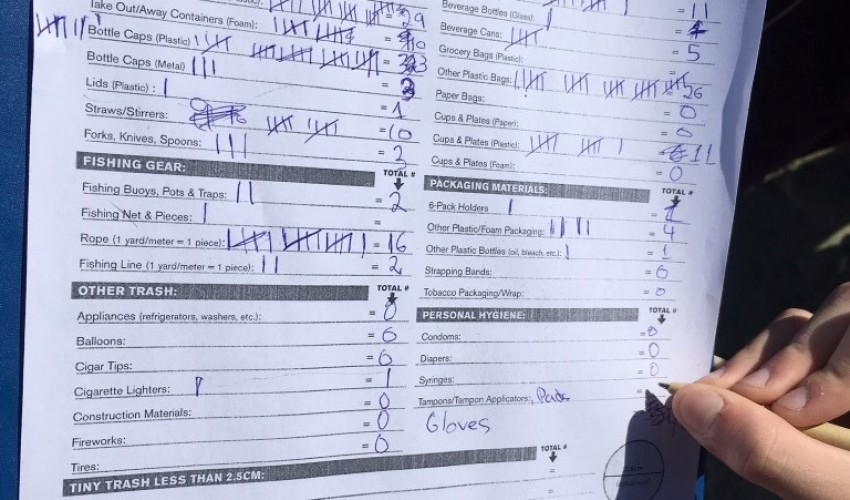 Take Out/Away Containers (Foam): = 29
Bottle Caps (Plastic) = 10
Bottle Caps (Metal)
Lids (Plastic) :
Straws/Stirrers: = 1
Forks, Knives, Spoons: = 10
= 3
FISHING GEAR: TOTAL #
Fishing Buoys, Pots & Traps: = 2
Fishing Net & Pieces: =
Rope (1 yard/meter = 1 piece): = 16
Fishing Line (1 yard/meter = 1 piece): = 2
OTHER TRASH: TOTAL #
Appliances (refrigerators, washers, etc.): = 0
Balloons: = 6
Cigar Tips: = 6
Cigarette Lighters: = 1
Construction Materials: = 0
Fireworks: = 0
Tires: = 0
TINY TRASH LESS THAN 2.5CM: TOTAL #
Beverage Bottles (Glass): = 11
Beverage Cans:
Grocery Bags (Plastic): = 5
Other Plastic Bags: = 26
Paper Bags: = 0
Cups & Plates (Paper): = 0
Cups & Plates (Plastic): 11
Cups & Plates (Foam): = 0
PACKAGING MATERIALS: TOTAL #
6-Pack Holders
Other Plastic/Foam Packaging: = 4
Other Plastic Bottles (oil, bleach, etc.): = 1
Strapping Bands: = 0
Tobacco Packaging/Wrap: = 0
PERSONAL HYGIENE: TOTAL #
Condoms: = 0
Diapers: = 0
Syringes: = 0
Tampons/Tampon Applicators: , Pads =
Gloves